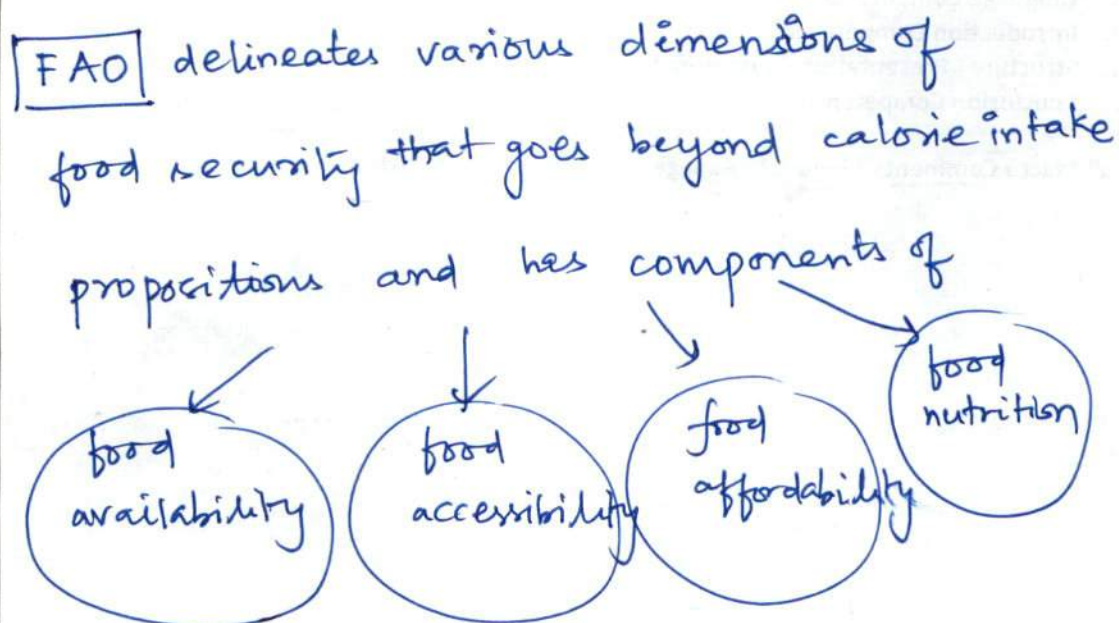 FAO delineates various dimensions of
food security that goes beyond calorie intake
propositions and has components of
food
availability
food
accessibility
food
affordability
food
nutrition